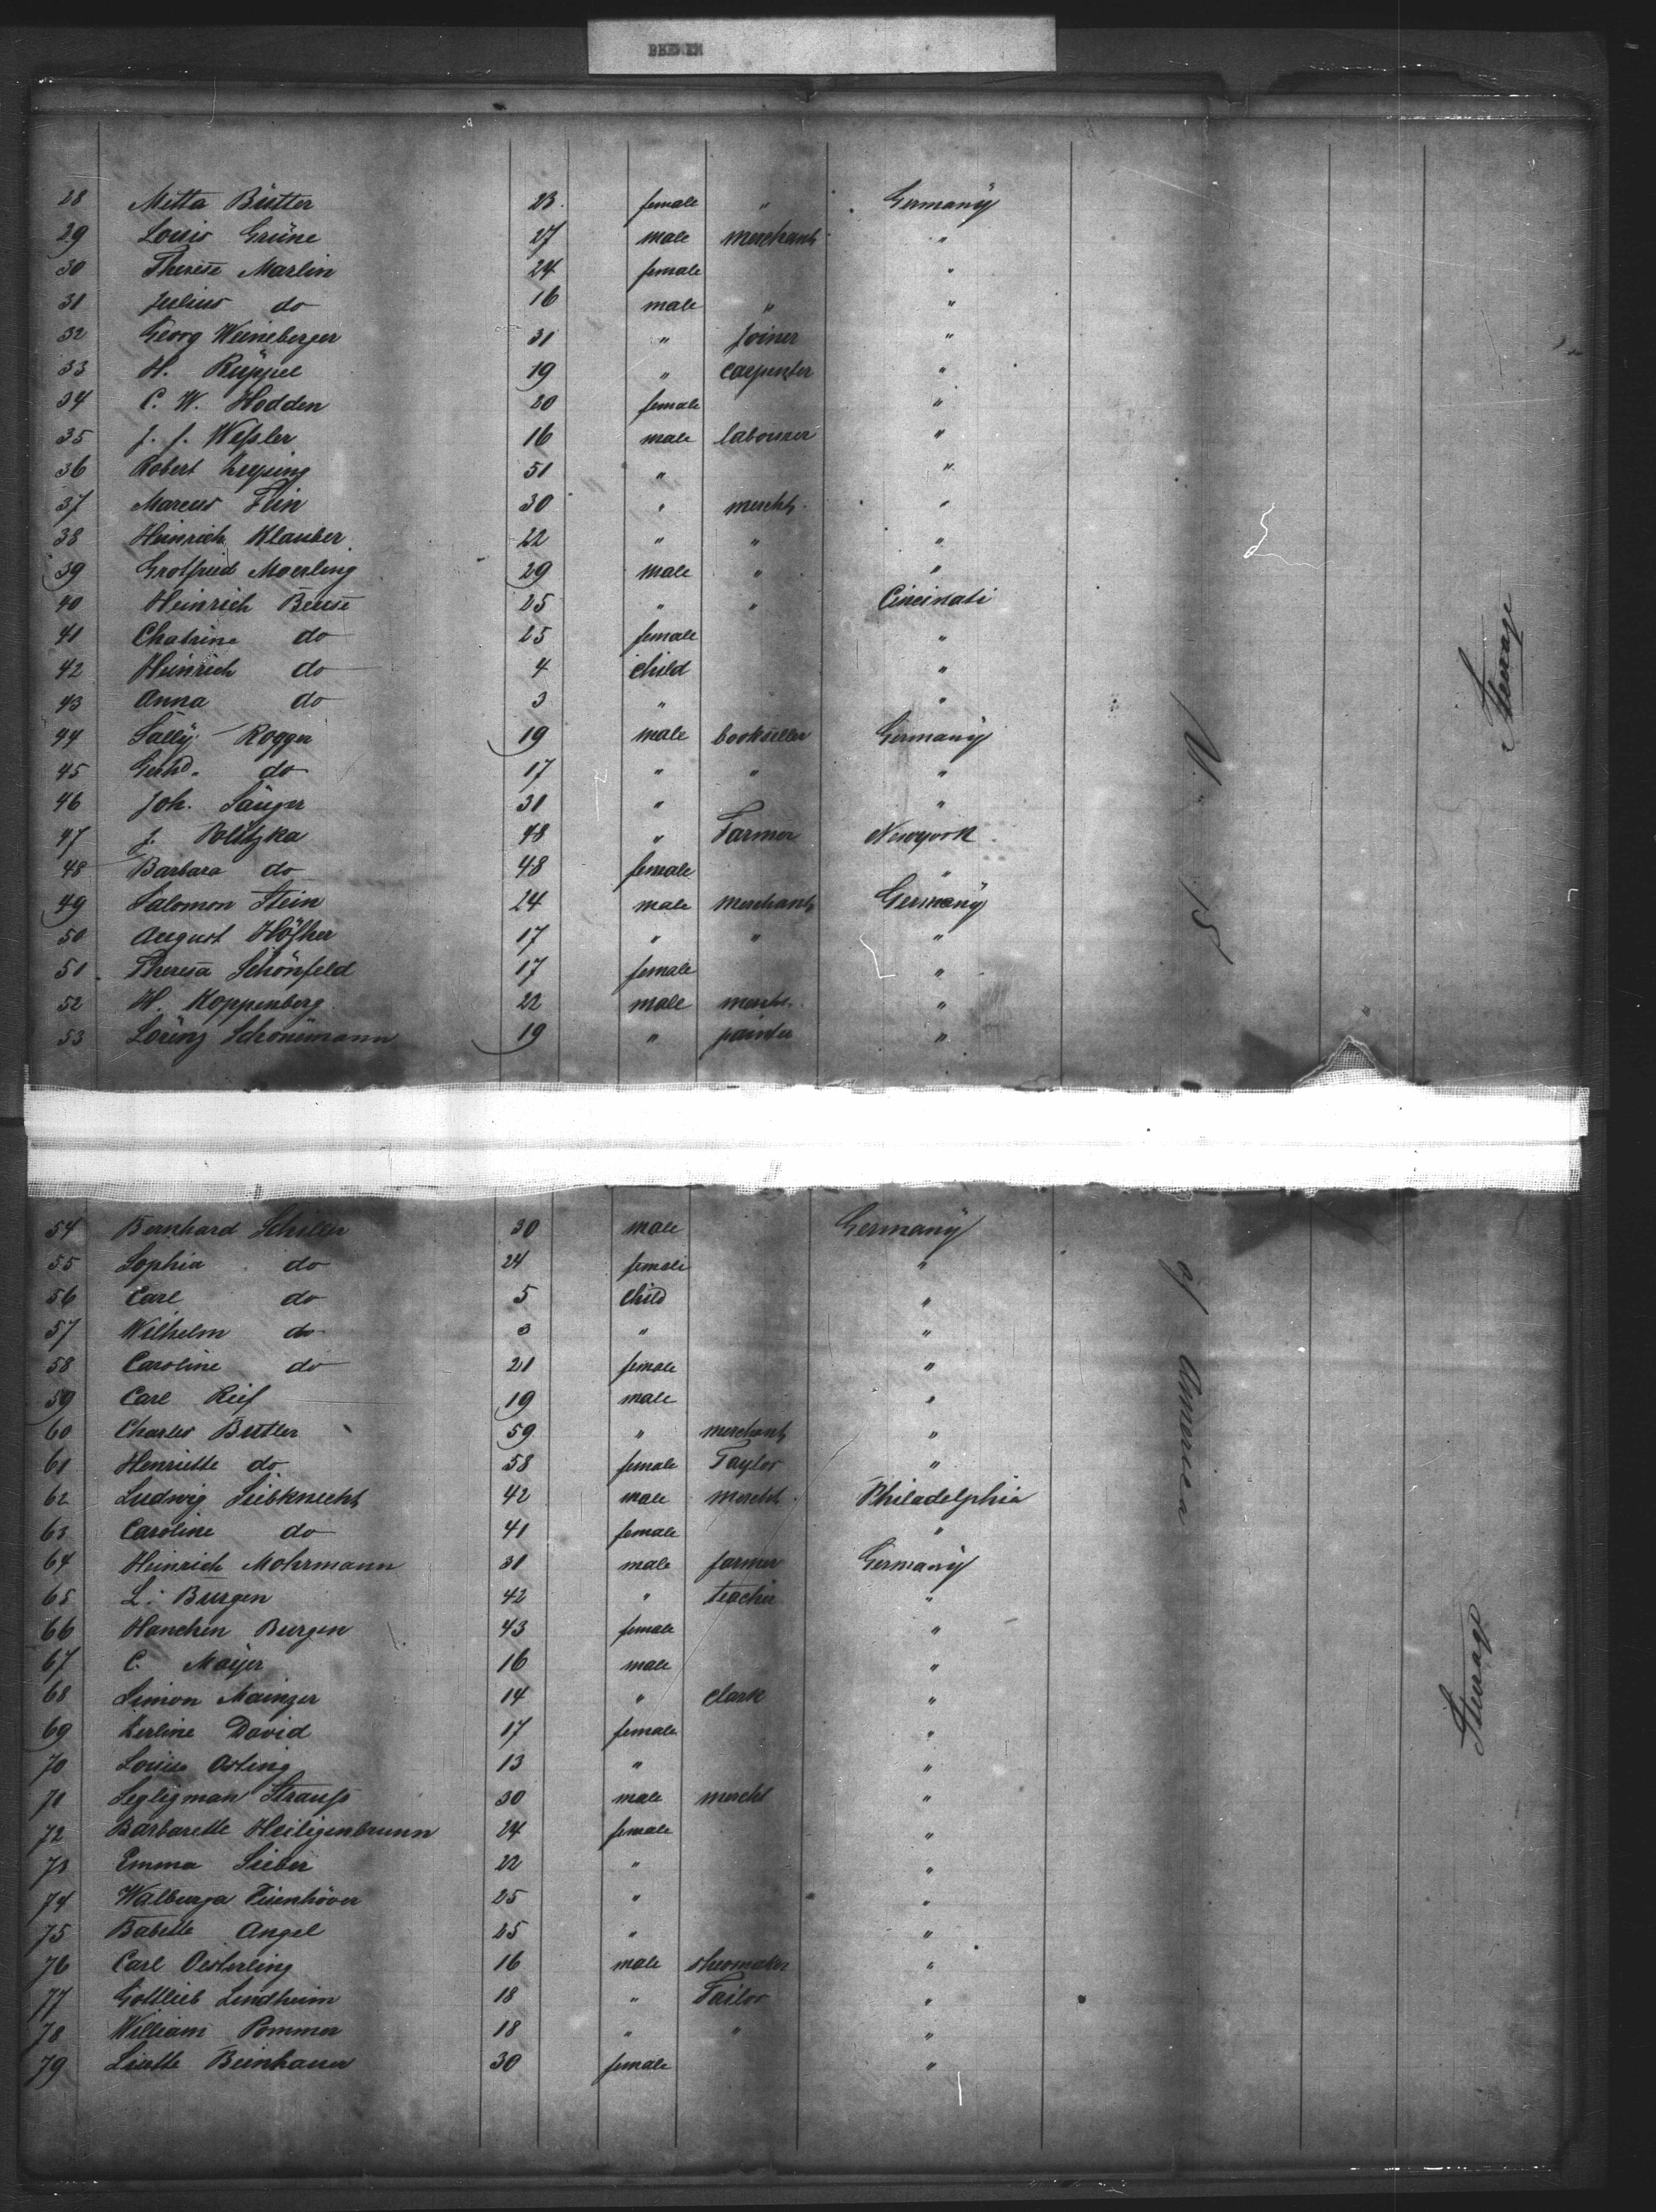 BREMEN
28 Metta Bütter 23. female " Germany
29 Louis Grüne 27 male merchant "
30 Therese Marlin 24 female "
31 Julius do 16 male " "
32 Georg Weineberger 31 " Joiner "
33 H. Rüppel 19 " carpenter "
34 C. W. Hodden 20 female "
35 J. J. Weßler 16 male labourer "
36 Robert 51 " "
37 Marcus 30 " mercht. "
38 Heinrich Klauber 22 " " "
39 Grotfried Moerling 29 male " "
40 Heinrich Beuse 25 " " Cincinati
41 Chatrine do 25 female "
42 Heinrich do 4 child "
43 Anna do 3 " "
44 Sally Rogger 19 male bookseller Germany
45 Gerhd. do 17 " " "
46 Joh. Sänger 31 " "
47 J. Politzka 48 " Farmer Newyork
48 Barbara do 48 female "
49 Salomon Stein 24 male merchant Germany
50 August Höfker 17 " " "
51 Theresa Schönfeld 17 female "
52 H. Koppenberg 22 male mercht. "
53 Lorenz Schönemann 19 " painter "
U. S.
Steerage
54 Bernhard Schiller 30 male Germany
55 Sophia do 24 female "
56 Carl do 5 child "
57 Wilhelm do 3 " "
58 Caroline do 21 female "
59 Carl Rief 19 male "
60 Charles Butler 59 " merchant "
61 Henriette do 58 female Taylor "
62 Ludwig Liebknecht 42 male mercht. Philadelphia
63 Caroline do 41 female "
64 Heinrich Mohrmann 31 male farmer Germany
65 L. Burgen 42 " teacher "
66 Hanchen Burgen 43 female "
67 C. Mayer 16 male "
68 Simon Mainzer 14 " clark "
69 Zerline David 17 female "
70 Louise Osting 13 " "
71 Segligman Strauß 30 male mercht "
72 Barbarette Heiligenbrunn 24 female "
73 Emma Sieber 22 " "
74 Walburga Eisenhöver 25 " "
75 Babette Angel 25 " "
76 Carl Oesterling 16 male shoemaker "
77 Gottlieb Lindheim 18 " Tailor "
78 William Pommer 18 " " "
79 Lisette Beinhauer 30 female "
of America
Steerage